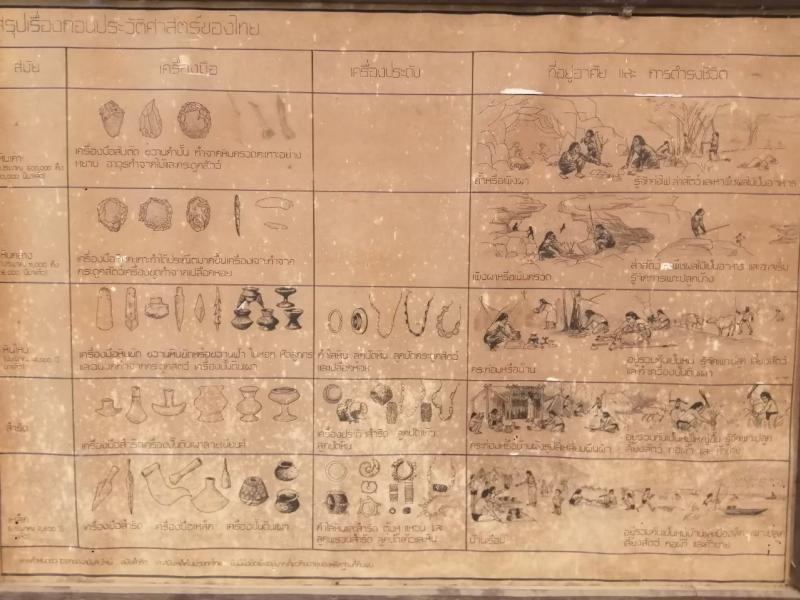 สรุปเรื่องก่อนประวัติศาสตร์ของไทย
สมัย
เครื่องมือ
เครื่องประดับ
ที่อยู่อาศัย และ การดำรงชีวิต
หินเก่า
เครื่องมือสับตัด ขวานกำปั้น ทำจากหินกรวดกะเทาะอย่าง
หยาบ อาวุธทำจากไม้และกระดูกสัตว์
ถ้ำหรือเพิงผา
รู้จักใช้ไฟ ล่าสัตว์และหาพืชผลไม้เป็นอาหาร
หินกลาง
เครื่องมือหินกะเทาะทำได้ประณีตมากขึ้นเครื่องเจาะทำจาก
กระดูกสัตว์เครื่องขุดทำจากเปลือกหอย
เพิงผาหรือเนินกรวด
ล่าสัตว์ และพืชผลไม้เป็นอาหาร และอาจเริ่ม
รู้จักการเพาะปลูกบ้าง
หินใหม่
เครื่องมือหินขัด ขวานหินขัดหรือขวานฟ้า ใบหอก หัวลูกศร
และฉมวกทำจากกระดูกสัตว์ เครื่องปั้นดินเผา
กำไลหิน ลูกปัดหิน ลูกปัดกระดูกสัตว์
และเปลือกหอย
กระท่อมหรือบ้าน
อยู่รวมกันเป็นหมู่ รู้จักเพาะปลูก เลี้ยงสัตว์
และทำเครื่องปั้นดินเผา
สำริด
เครื่องมือสำริดเครื่องปั้นดินเผาลายเขียนสี
เครื่องประดับสำริด ลูกปัดแก้ว
ลูกปัดหิน
กระท่อมหรือบ้านผังรูปสี่เหลี่ยมผืนผ้า
อยู่รวมกันเป็นหมู่ใหญ่ขึ้น รู้จักเพาะปลูก
เลี้ยงสัตว์ ทอผ้า และ
เหล็ก
เครื่องมือสำริด เครื่องมือเหล็ก เครื่องปั้นดินเผา
กำไลหินและสำริด ตุ้มหู แหวน และ
ลูกพรวนสำริด ลูกปัดแก้วและหิน
บ้านเรือน
อยู่รวมกันเป็นหมู่บ้านและเมืองเล็ก เพาะปลูก
เลี้ยงสัตว์ ทอผ้า และค้าขาย